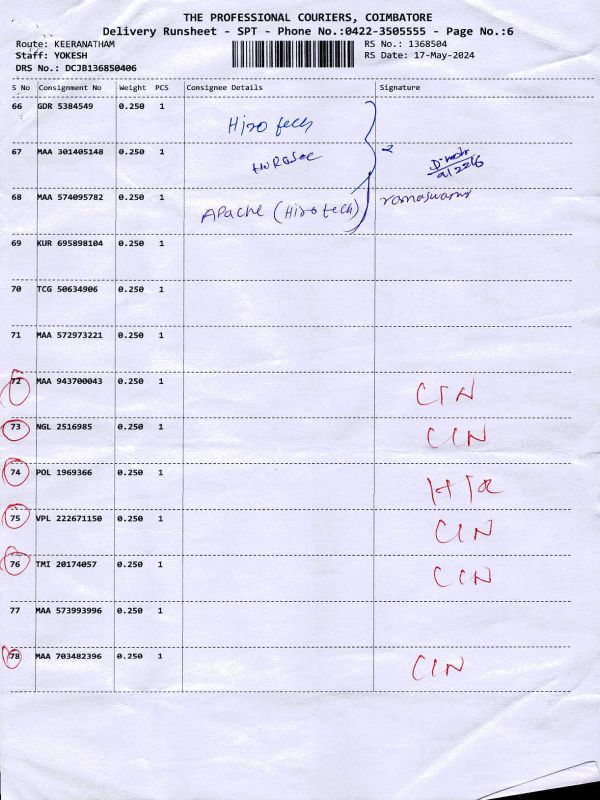 THE PROFESSIONAL COURIERS, COIMBATORE
Delivery Runsheet - SPT - Phone No.:0422-3505555 - Page No.:6
Route: KEERANATHAM RS No.: 1368504
Staff: YOKESH RS Date: 17-May-2024
DRS No.: DCJB136850406
S No Consignment No Weight PCS Consignee Details Signature
66 GDR 5384549 0.250 1 Hiro tech
67 MAA 301405148 0.250 1
68 MAA 574095782 0.250 1 APache (Hiro tech) ramaswamy
69 KUR 695898104 0.250 1
70 TCG 50634906 0.250 1
71 MAA 572973221 0.250 1
72 MAA 943700043 0.250 1 CIN
73 NGL 2516985 0.250 1 CIN
74 POL 1969366 0.250 1
75 VPL 222671150 0.250 1 CIN
76 TMI 20174057 0.250 1 CIN
77 MAA 573993996 0.250 1
78 MAA 703482396 0.250 1 CIN